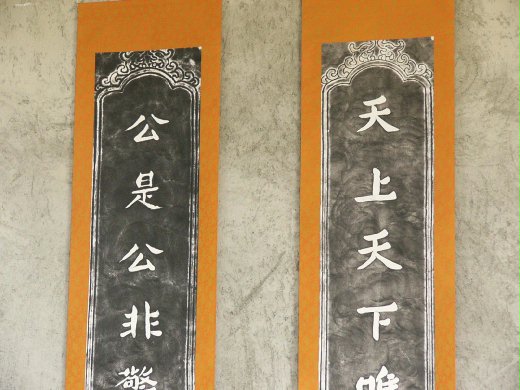 天上天下唯
公是公非警